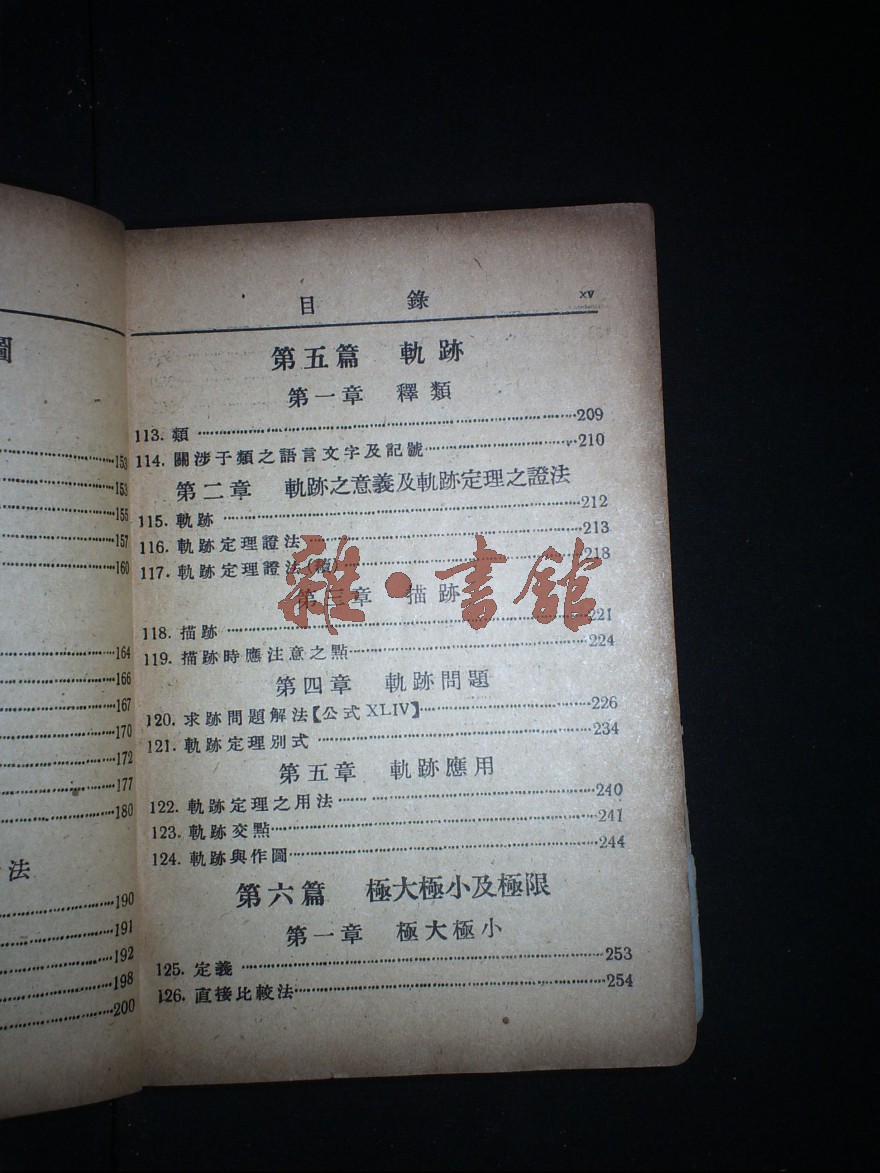 圖
153
153
155
157
160
164
166
167
170
172
177
180
法
190
191
192
198
200
目錄 xv
第五篇 軌跡
第一章 釋類
113. 類 209
114. 關涉于類之語言文字及記號 210
第二章 軌跡之意義及軌跡定理之證法
115. 軌跡 212
116. 軌跡定理證法 213
117. 軌跡定理證法(續) 218
第三章 描跡
118. 描跡 221
119. 描跡時應注意之點 224
第四章 軌跡問題
120. 求跡問題解法【公式XLIV】 226
121. 軌跡定理別式 234
第五章 軌跡應用
122. 軌跡定理之用法 240
123. 軌跡交點 241
124. 軌跡與作圖 244
第六篇 極大極小及極限
第一章 極大極小
125. 定義 253
126. 直接比較法 254
雜·書館